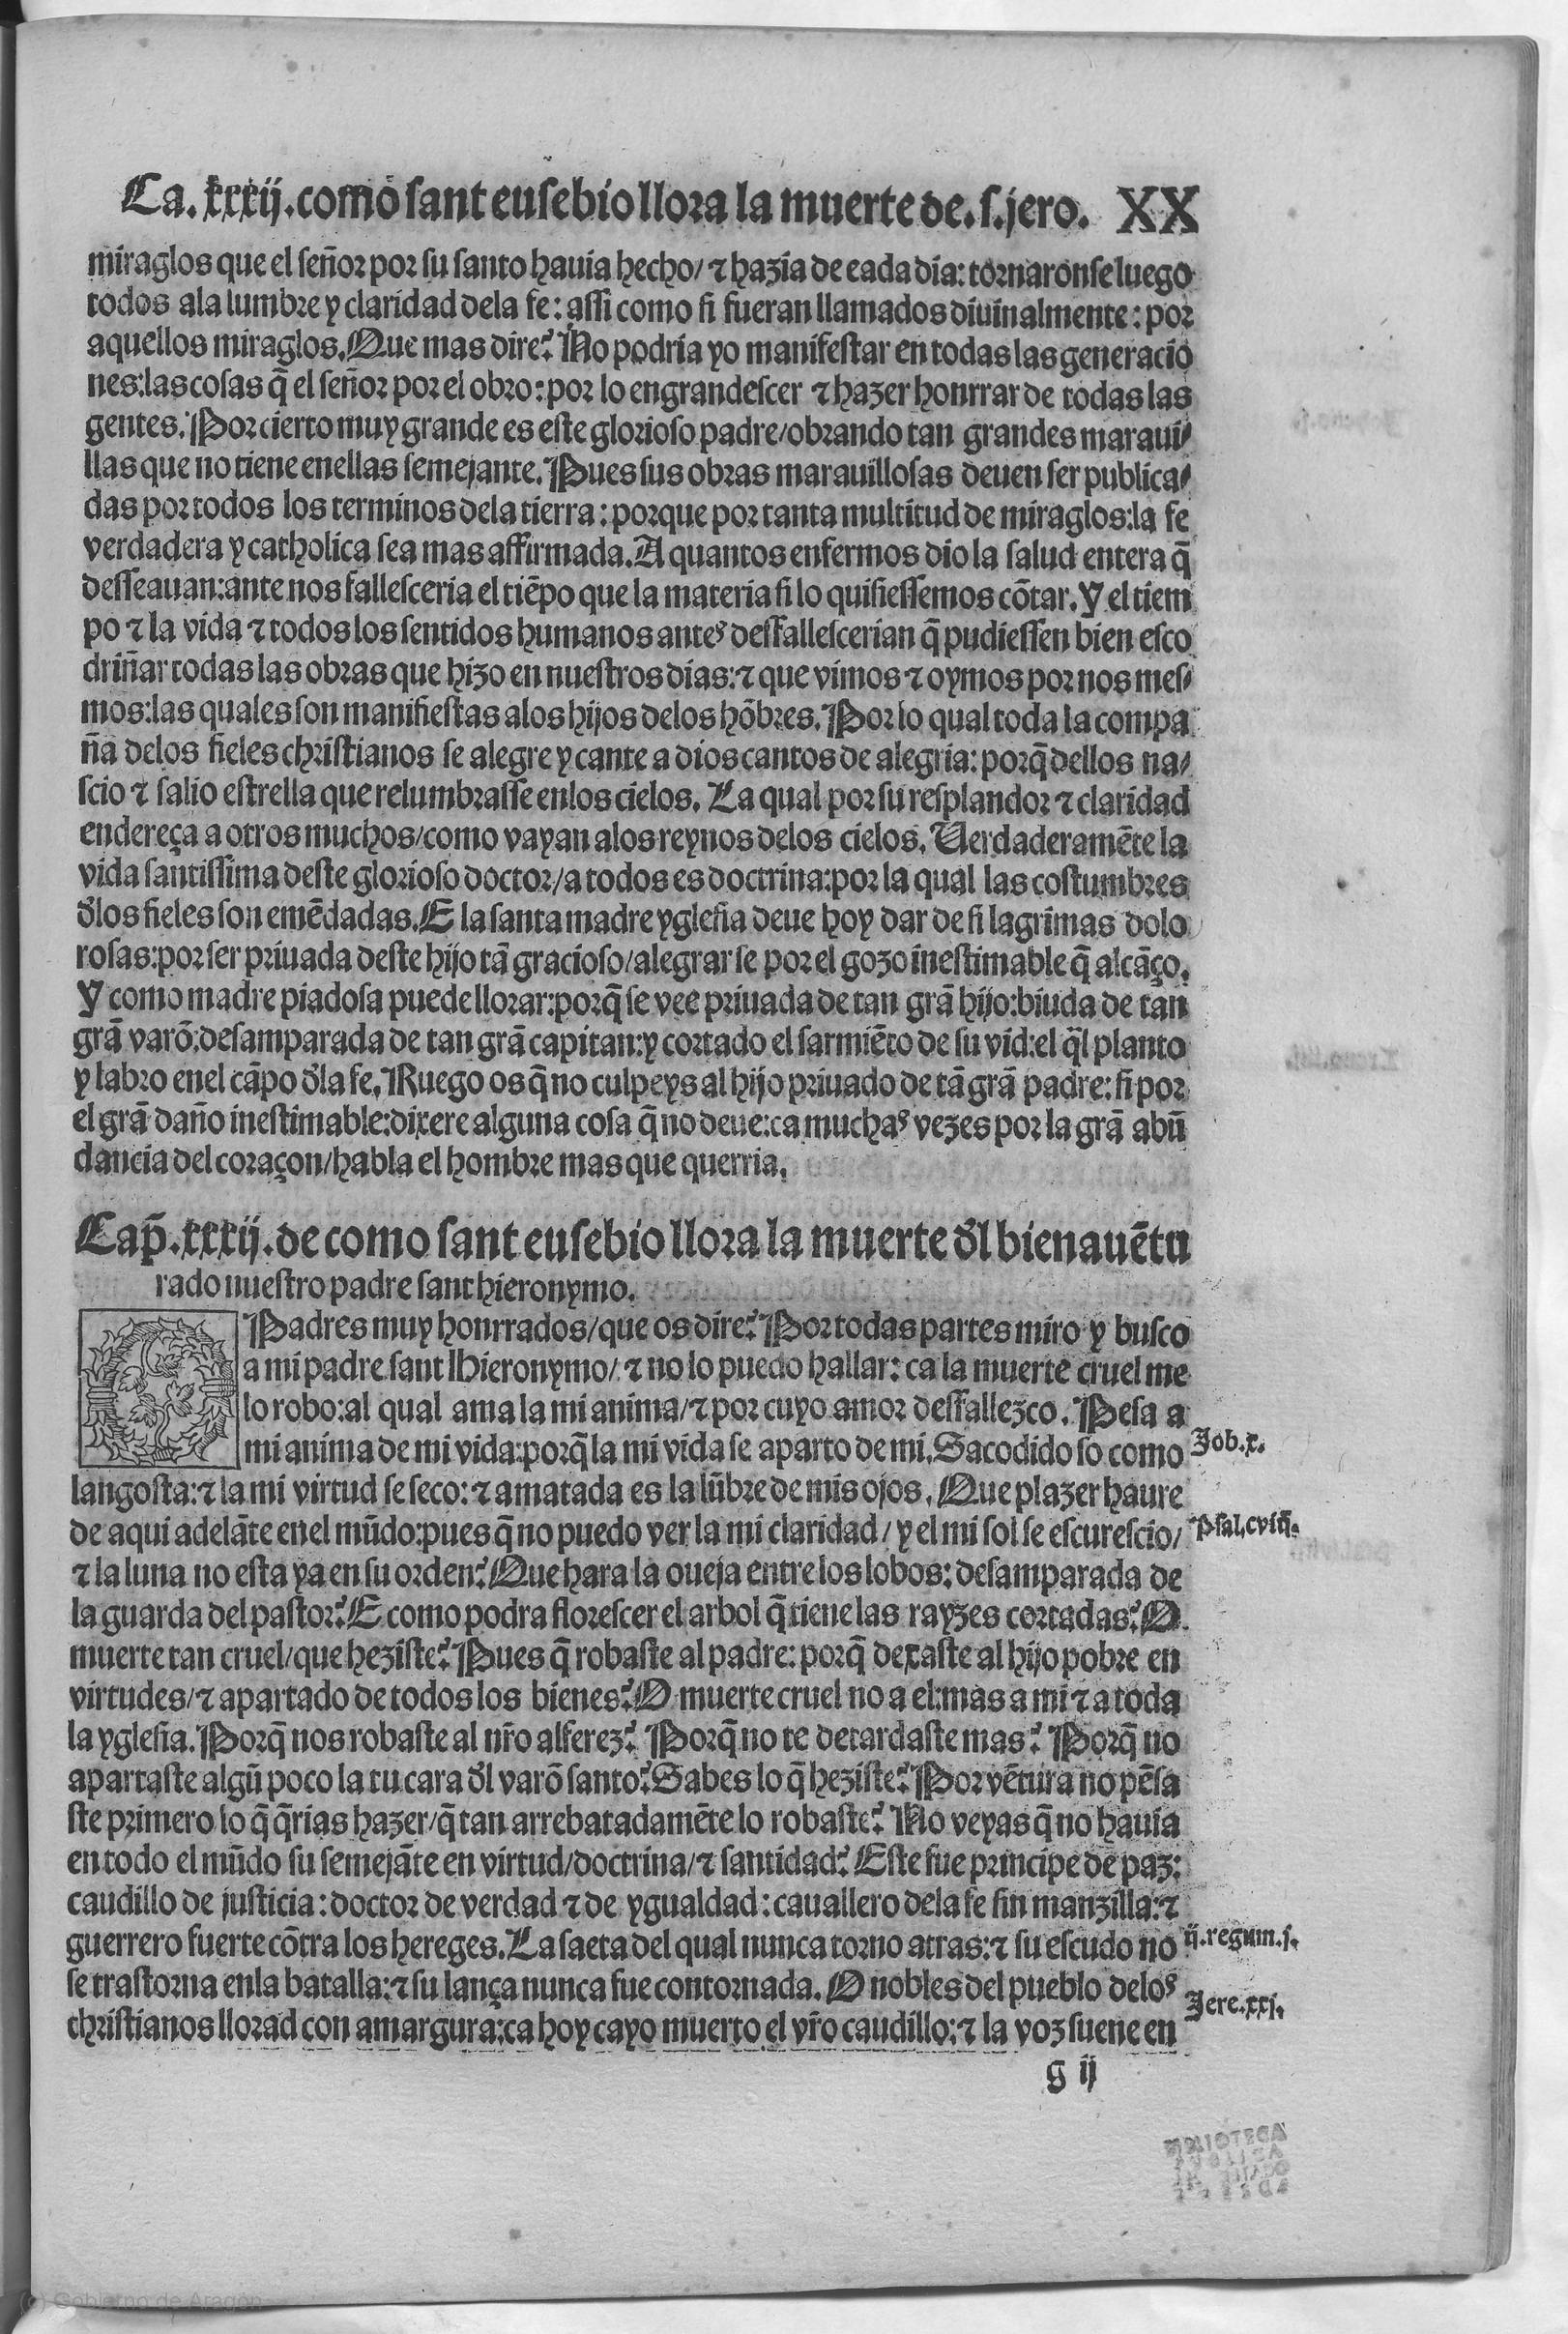 Ca. xxxij. como sant eusebio llora la muerte de. s. jero. XX
miraglos que el señor por su santo hauia hecho/ ⁊ hazia de cada dia: tornaronse luego
todos ala lumbre y claridad dela fe: assi como si fueran llamados diuinalmente: por
aquellos miraglos. Que mas dire? No podria yo manifestar en todas las generacio
nes: las cosas q̃ el señor por el obro: por lo engrandescer ⁊ hazer honrrar de todas las
gentes. Por cierto muy grande es este glorioso padre/ obrando tan grandes maraui/
llas que no tiene enellas semejante. Pues sus obras marauillosas deuen ser publica/
das por todos los terminos dela tierra: porque por tanta multitud de miraglos: la fe
verdadera y catholica sea mas affirmada. A quantos enfermos dio la salud entera q̃
desseauan: ante nos fallesceria el tiẽpo que la materia si lo quisiessemos cõtar. Y el tiem
po ⁊ la vida ⁊ todos los sentidos humanos antes desfallescerian q̃ pudiessen bien esco
driñar todas las obras que hizo en nuestros dias: ⁊ que vimos ⁊ oymos por nos mes/
mos: las quales son manifiestas alos hijos delos hõbres. Por lo qual toda la compa
ña delos fieles christianos se alegre y cante a dios cantos de alegria: porq̃ dellos na/
scio ⁊ salio estrella que relumbrasse enlos cielos. La qual por su resplandor ⁊ claridad
endereça a otros muchos/ como vayan alos reynos delos cielos. Verdaderamẽte la
vida santissima deste glorioso doctor/ a todos es doctrina: por la qual las costumbres
d̃los fieles son emẽdadas. E la santa madre yglesia deue hoy dar de si lagrimas dolo
rosas: por ser priuada deste hijo tã gracioso/ alegrar se por el gozo inestimable q̃ alcãço.
Y como madre piadosa puede llorar: porq̃ se vee priuada de tan grã hijo: biuda de tan
grã varõ: desamparada de tan grã capitan: y cortado el sarmiẽto de su vid: el q̃l planto
y labro enel cãpo d̃la fe. Ruego os q̃ no culpeys al hijo priuado de tã grã padre: si por
el grã daño inestimable: dixere alguna cosa q̃ no deue: ca muchas vezes por la grã abũ
dancia del coraçon/ habla el hombre mas que querria.
Cap̃. xxxij. de como sant eusebio llora la muerte d̃l bienauẽtu
rado nuestro padre sant hieronymo.
O Padres muy honrrados/ que os dire? Por todas partes miro y busco
a mi padre sant Hieronymo/ ⁊ no lo puedo hallar: ca la muerte cruel me
lo robo: al qual ama la mi anima/ ⁊ por cuyo amor desfallezco. Pesa a
mi anima de mi vida: porq̃ la mi vida se aparto de mi. Sacodido so como
Job. x.
langosta: ⁊ la mi virtud se seco: ⁊ amatada es la lũbre de mis ojos. Que plazer haure
de aqui adelãte enel mũdo: pues q̃ no puedo ver la mi claridad/ y el mi sol se escurescio/
Psal. cviij.
⁊ la luna no esta ya en su orden? Que hara la oueja entre los lobos: desamparada de
la guarda del pastor? E como podra florescer el arbol q̃ tiene las rayzes cortadas? O
muerte tan cruel/ que heziste? Pues q̃ robaste al padre: porq̃ dexaste al hijo pobre en
virtudes/ ⁊ apartado de todos los bienes? O muerte cruel no a el: mas a mi ⁊ a toda
la yglesia. Porq̃ nos robaste al nr̃o alferez? Porq̃ no te detardaste mas? Porq̃ no
apartaste algũ poco la tu cara d̃l varõ santo? Sabes lo q̃ heziste? Por vẽtura no pẽsa
ste primero lo q̃ q̃rias hazer/ q̃ tan arrebatadamẽte lo robaste? No veyas q̃ no hauia
en todo el mũdo su semejãte en virtud/ doctrina/ ⁊ santidad? Este fue principe de paz:
caudillo de justicia: doctor de verdad ⁊ de ygualdad: cauallero dela fe sin manzilla: ⁊
guerrero fuerte cõtra los hereges. La saeta del qual nunca torno atras: ⁊ su escudo no
ij. regum. j.
se trastorna enla batalla: ⁊ su lança nunca fue contornada. O nobles del pueblo delos
Jere. xxj.
christianos llorad con amargura: ca hoy cayo muerto el vr̃o caudillo: ⁊ la voz suene en
g ij
BIBLIOTECA
(c) Gobierno de Aragón